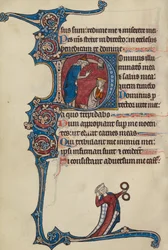 sus sum: redime me et miserere mei
Pes meus stetit in directo: in ecclesiis
benedicam te domine
Dominus illu
minatio mea
et salus mea
quem timebo
Dominus p
tector vite me
a quo trepidabo
Dum appropiant super me nocen
tes: ut edant carnes meas
Qui tribulant me inimici mei:
ipsi infirmati sunt et ceciderunt
Si consistant adversum me cast